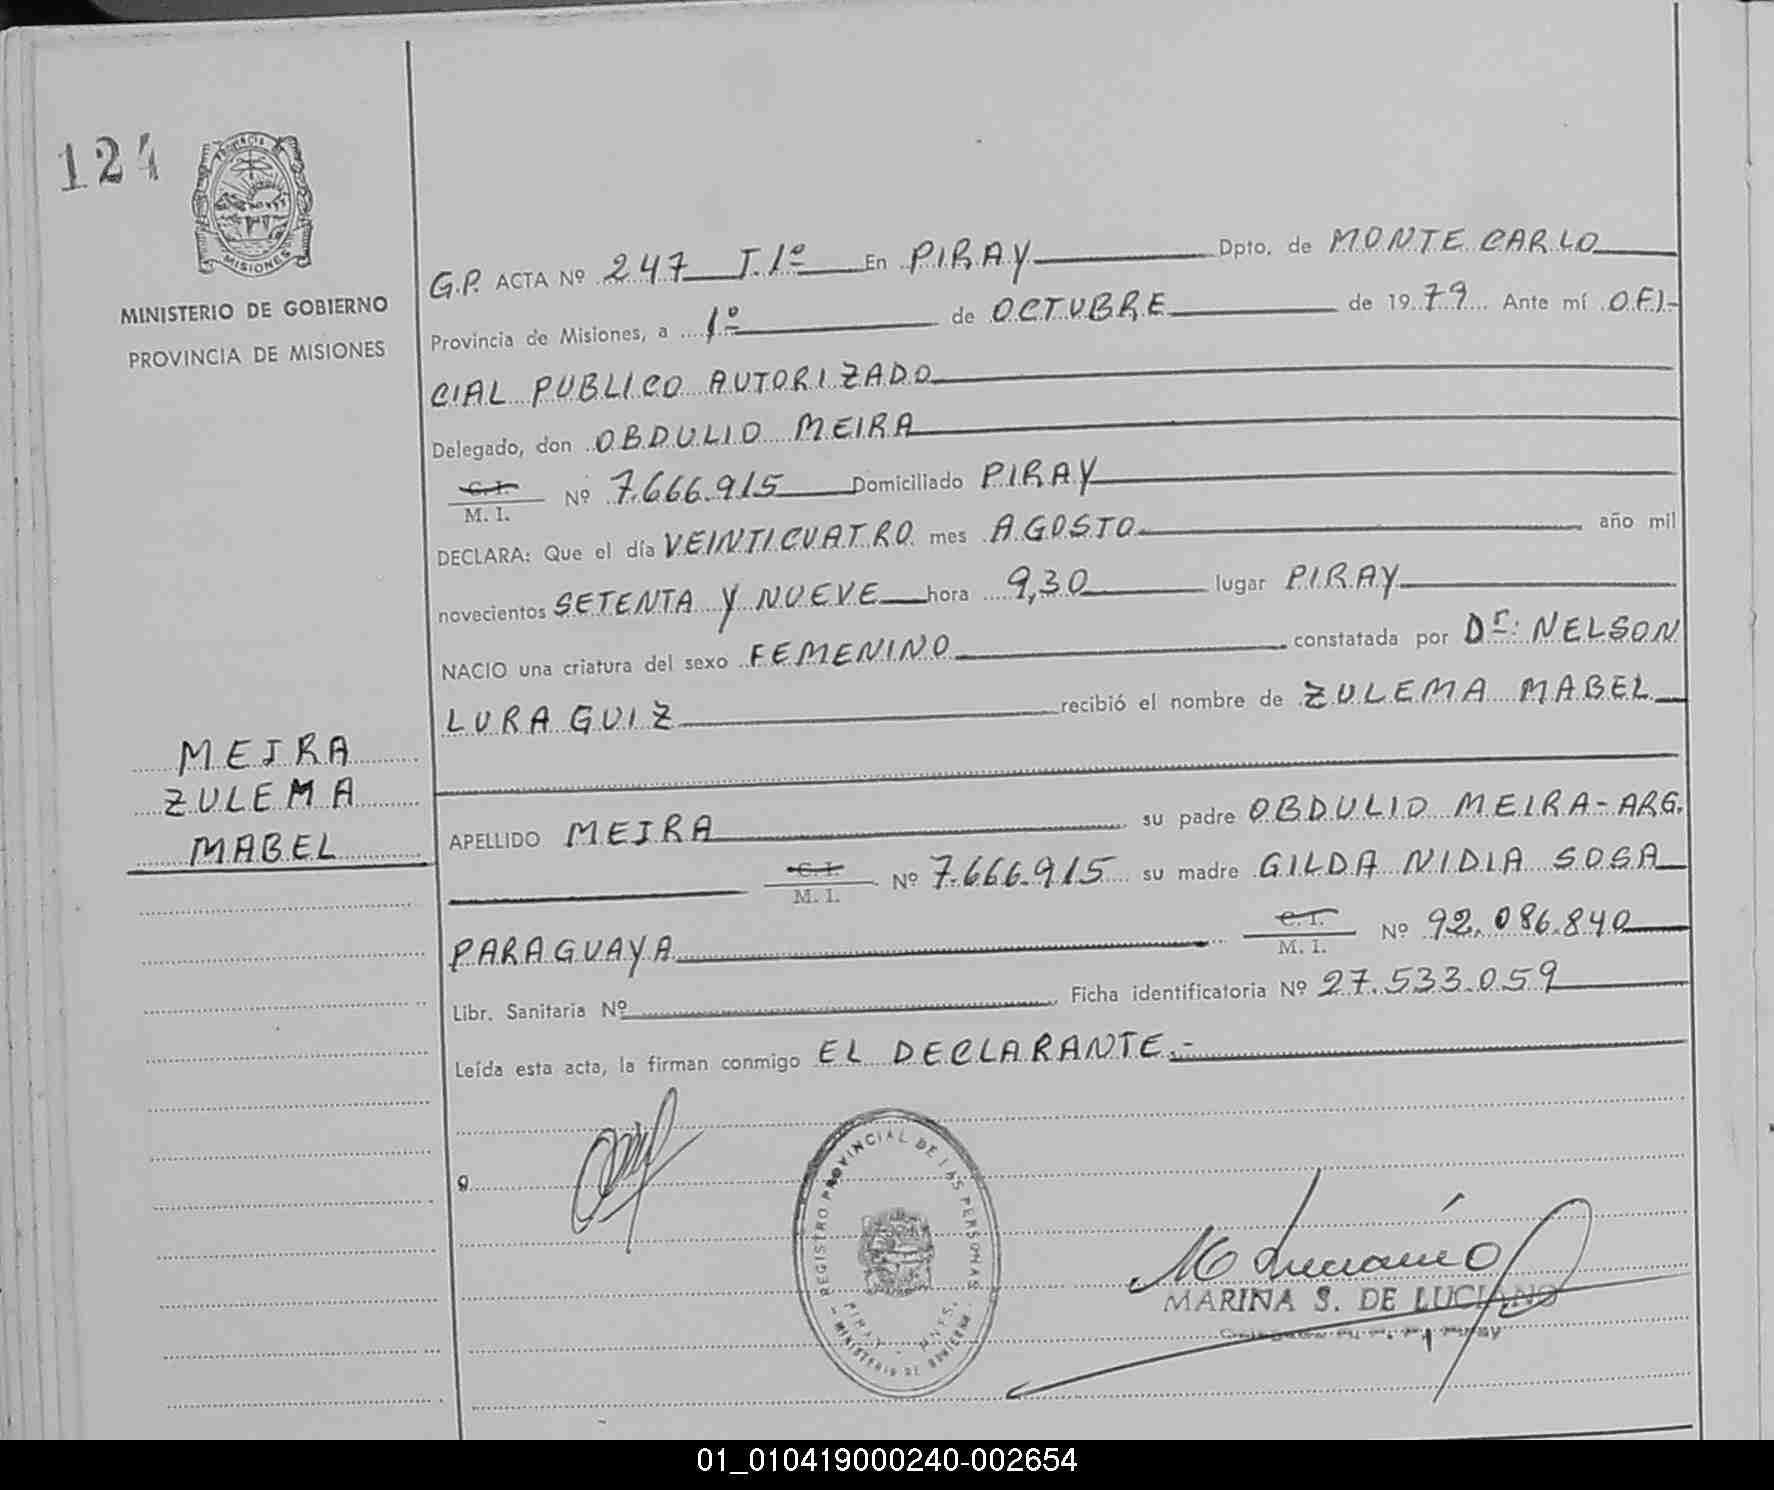 124
PROVINCIA DE
MISIONES
MINISTERIO DE GOBIERNO
PROVINCIA DE MISIONES
G.P. ACTA Nº 247 T.1º En PIRAY Dpto. de MONTE CARLO
Provincia de Misiones, a 1º de OCTUBRE de 1979 Ante mí OFI-
CIAL PUBLICO AUTORIZADO
Delegado, don OBDULIO MEIRA
C. I.
M. I. Nº 7.666.915 Domiciliado PIRAY
DECLARA: Que el día VEINTICUATRO mes AGOSTO año mil
novecientos SETENTA Y NUEVE hora 9,30 lugar PIRAY
NACIO una criatura del sexo FEMENINO constatada por Dr: NELSON
LURAGUIZ recibió el nombre de ZULEMA MABEL
MEIRA
ZULEMA
MABEL
APELLIDO MEIRA su padre OBDULIO MEIRA-ARG.
C. I.
M. I. Nº 7.666.915 su madre GILDA NIDIA SOSA
PARAGUAYA C. I.
M. I. Nº 92.086.840
Libr. Sanitaria Nº Ficha identificatoria Nº 27.533.059
Leída esta acta, la firman conmigo EL DECLARANTE.-
REGISTRO PROVINCIAL DE LAS PERSONAS
PIRAY - MNES.
MINISTERIO DE GOBIERNO
M Luciano
MARINA S. DE LUCIANO
01_010419000240-002654